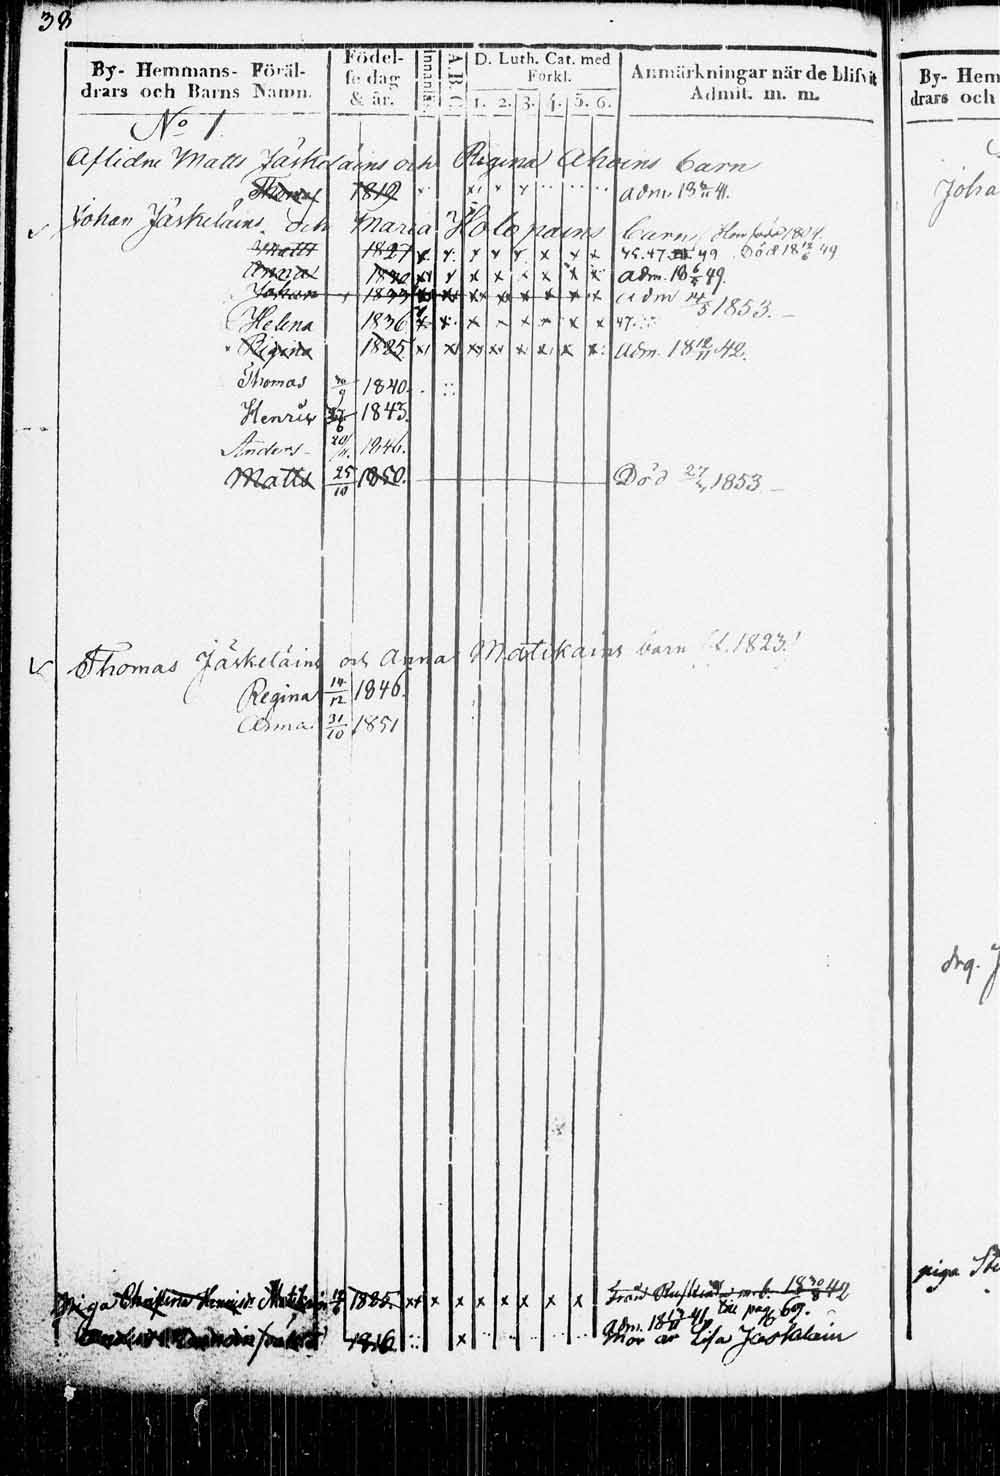 38
By- Hemmans- Föräl-
drars och Barns Namn.
Födel-
se dag
& år.
Innanläs.
A.B.C.
D. Luth. Cat. med
Förkl.
1. 2. 3. 4. 5. 6.
Anmärkningar när de blifvit
Admit. m. m.
By- Hem
drars och
No 1
Aflidne Matts Jäskeläins och Regina Ahoins barn
Thomas 1819 adm. 18 41.
Joha
Johan Jäskeläins och Maria Holopains barn
Matts 1827 x x x x x x x x 45.47. 49 Död 18 12/6 49
Anna 1830 x x x x x x x x adm. 18 6/5 49.
Johan 1833 x x x x x x x x adm 14/5 1853.
Helena 1836 x x x x x x x x 47.
Regina 1825 x x x x x x x x adm. 18 12/11 42.
Thomas 30/9 1840.
Henric 27/6 1843.
Anders 20/11 1846.
Matts 25/10 1850. Död 27/4 1853
Thomas Jäskeläins och Anna Matikains barn f. 1823.
Regina 14/12 1846.
Anna 31/10 1851
drq. J
piga
Piga Christina Matikain 1825 x x x x x x x x x m. b. 18 30/8 42
adm. 18 41 till pag 609.
1816 x Mor är Lisa Jäskeläin